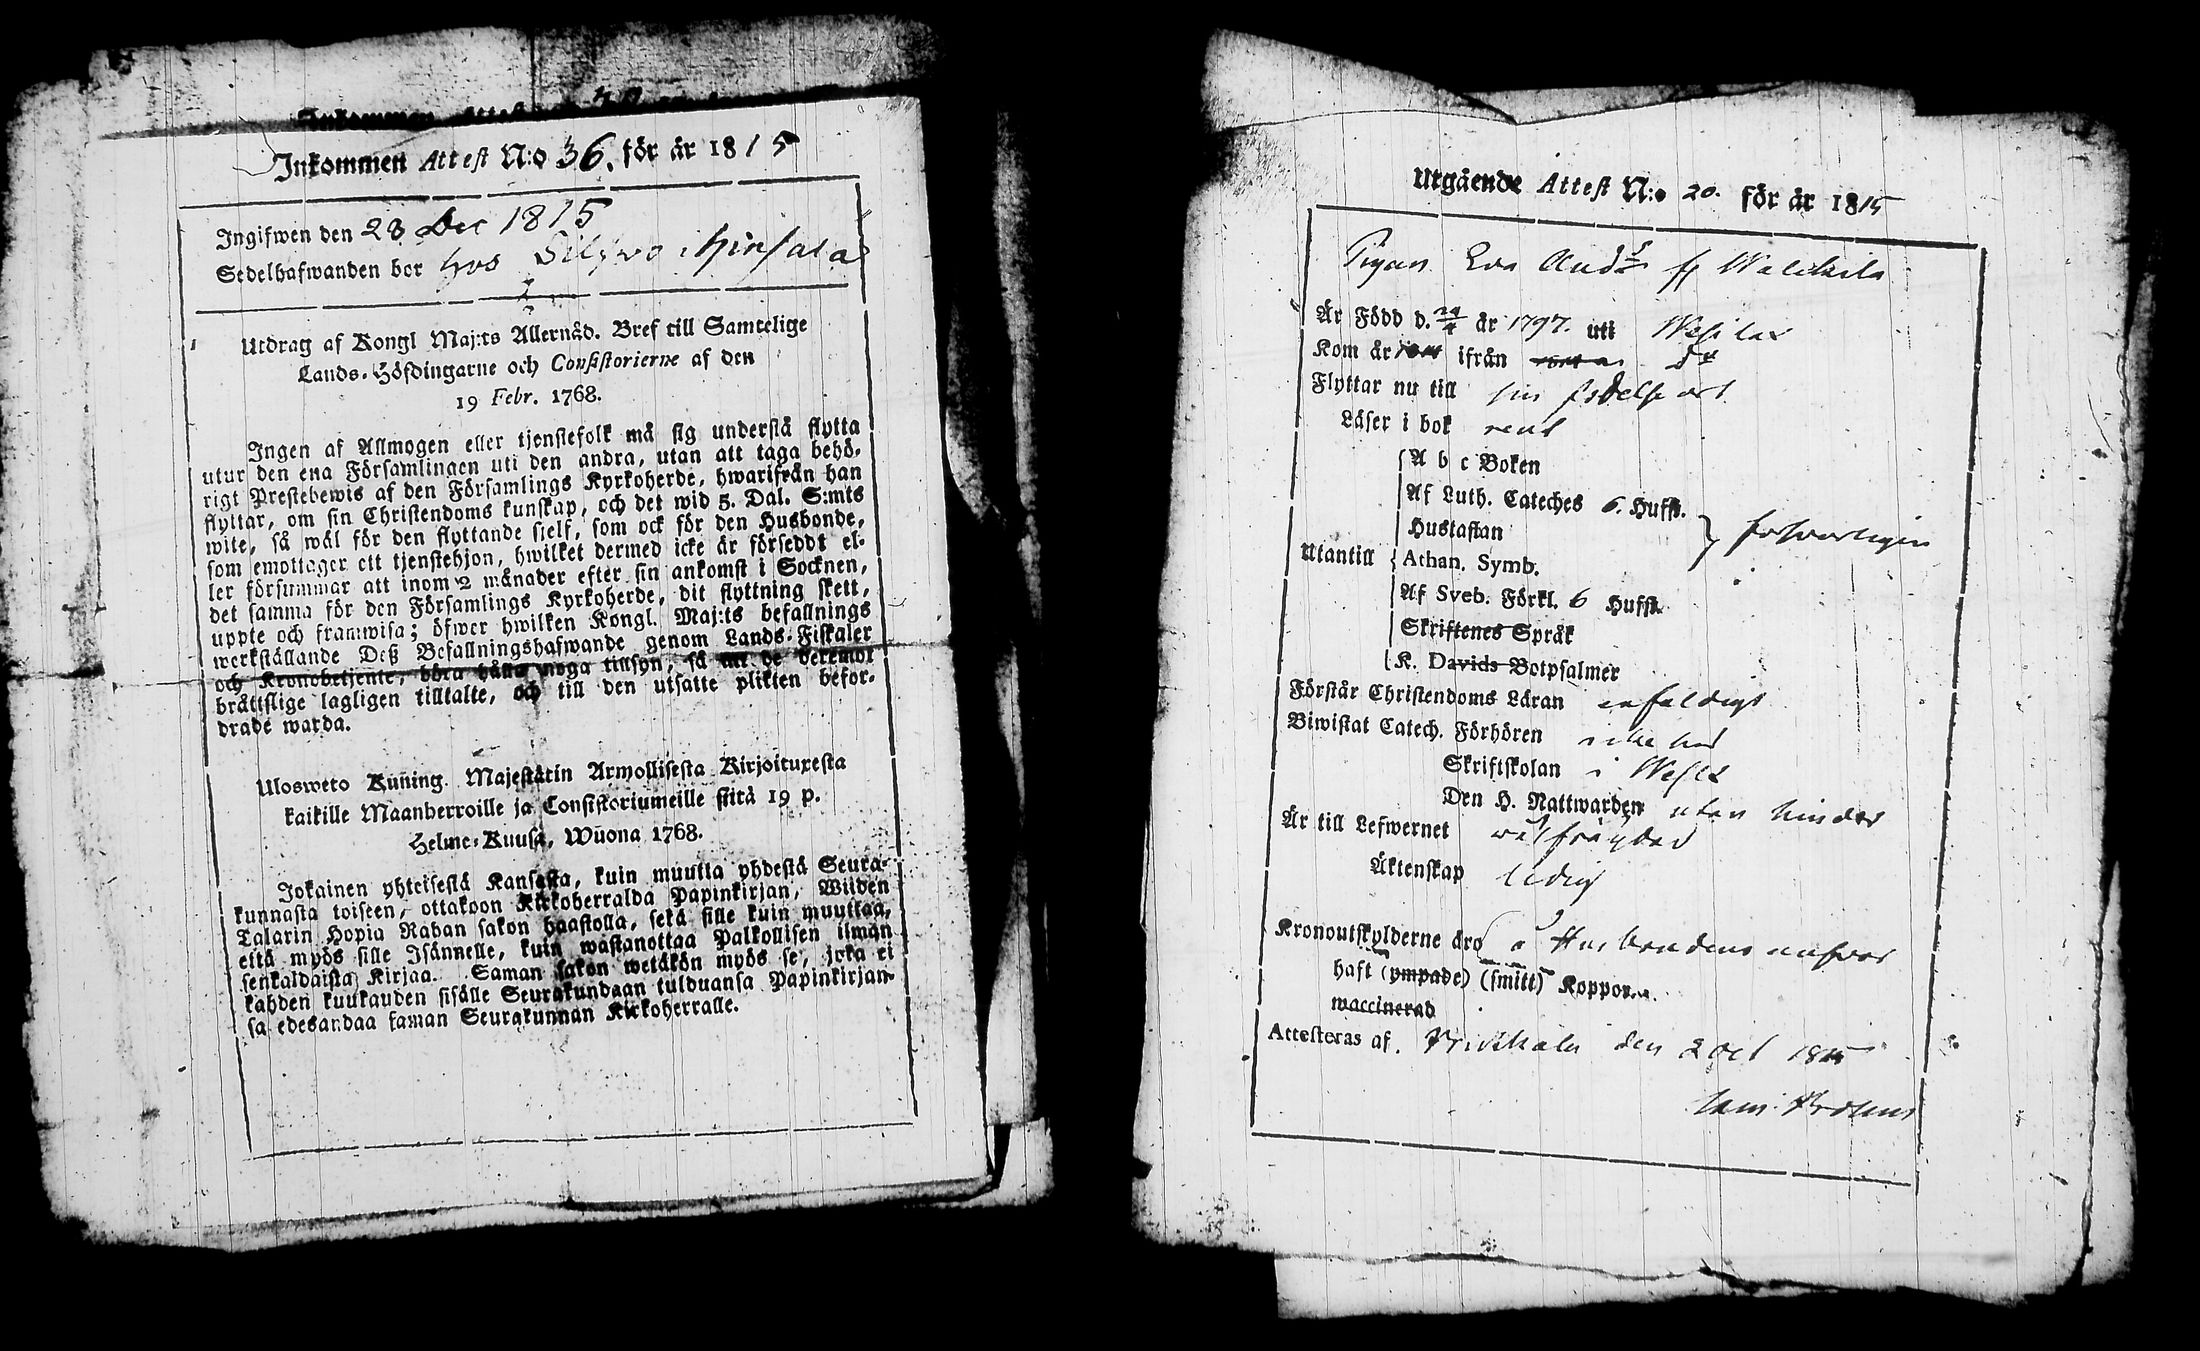 Inkommen Attest N:o 36. för år 1815
Ingifwen den 28 Dec 1815
Sedelhafwanden bor hos
Utdrag af Kongl Maj:ts Allernåd. Bref till Samtelige
Lands-Höfdingarne och Consistorierne af den
19 Febr. 1768.
Ingen af Allmogen eller tjenstefolk må sig understå flytta
utur den ena Församlingen uti den andra, utan att taga behö-
rigt Prestebewis af den Församlings Kyrkoherde, hwarifrån han
flyttar, om sin Christendoms kunskap, och det wid 5. Dal. S:mts
wite, så wäl för den flyttande sielf, som ock för den Husbonde,
som emottager ett tjenstehjon, hwilket dermed icke är förseddt el-
ler försummar att inom 2 månader efter sin ankomst i Socknen,
det samma för den Församlings Kyrkoherde, dit flyttning skett,
uppte och framwisa; öfwer hwilken Kongl. Maj:ts befallnings
werkställande Deß Befallningshafwande genom Lands-Fiskaler
och Kronobetjente, böra hålla noga tillsyn, så att de deremot
bråttslige lagligen tilltalte, och till den utsatte plikten befor-
drade warda.
Ulosweto Kuning. Majestätin Armollisesta Kirjoituxesta
kaikille Maanherroille ja Consistoriumeille siitä 19 p.
Helme-Kuusa, Wuona 1768.
Jokainen yhteisestä Kansasta, kuin muutta yhdestä Seura-
kunnasta toiseen, ottakoon Kirkoherralda Papinkirjan, Wiiden
Talarin Hopia Rahan sakon haastolla, sekä sille kuin muuttaa,
että myös sille Isännelle, kuin wastanottaa Palkollisen ilman
senkaldaista Kirjaa. Saman sakon wetäkön myös se, joka ei
kahden kuukauden sisälle Seurakundaan tulduansa Papinkirjan-
sa edesandaa saman Seurakunnan Kirkoherralle.
Utgående Attest N:o 20. för år 1815
Pigan Eva
Är Född d. 24/4 år 1797. uti Wesilax
Kom år ifrån do
Flyttar nu till sin födelse ort
Läser i bok rent
A b c Boken
Af Luth. Cateches 6. Hufst.
Hustaflan
Utantill Athan. Symb. försvarligen
Af Sveb. Förkl. 6 Hufst.
Skriftenes Språk
K. Davids Botpsalmer
Förstår Christendoms Läran enfaldigt
Biwistat Catech. Förhören icke här
Skriftskolan i
Den H. Nattwarden utan hinder
Är till Lefwernet wälfrägdad
Äktenskap ledig
Kronoutskylderne äro å Husbondens answar
haft (ympade) (smitt) Koppor.
waccinerad
Attesteras af. den 2 Oct 1815